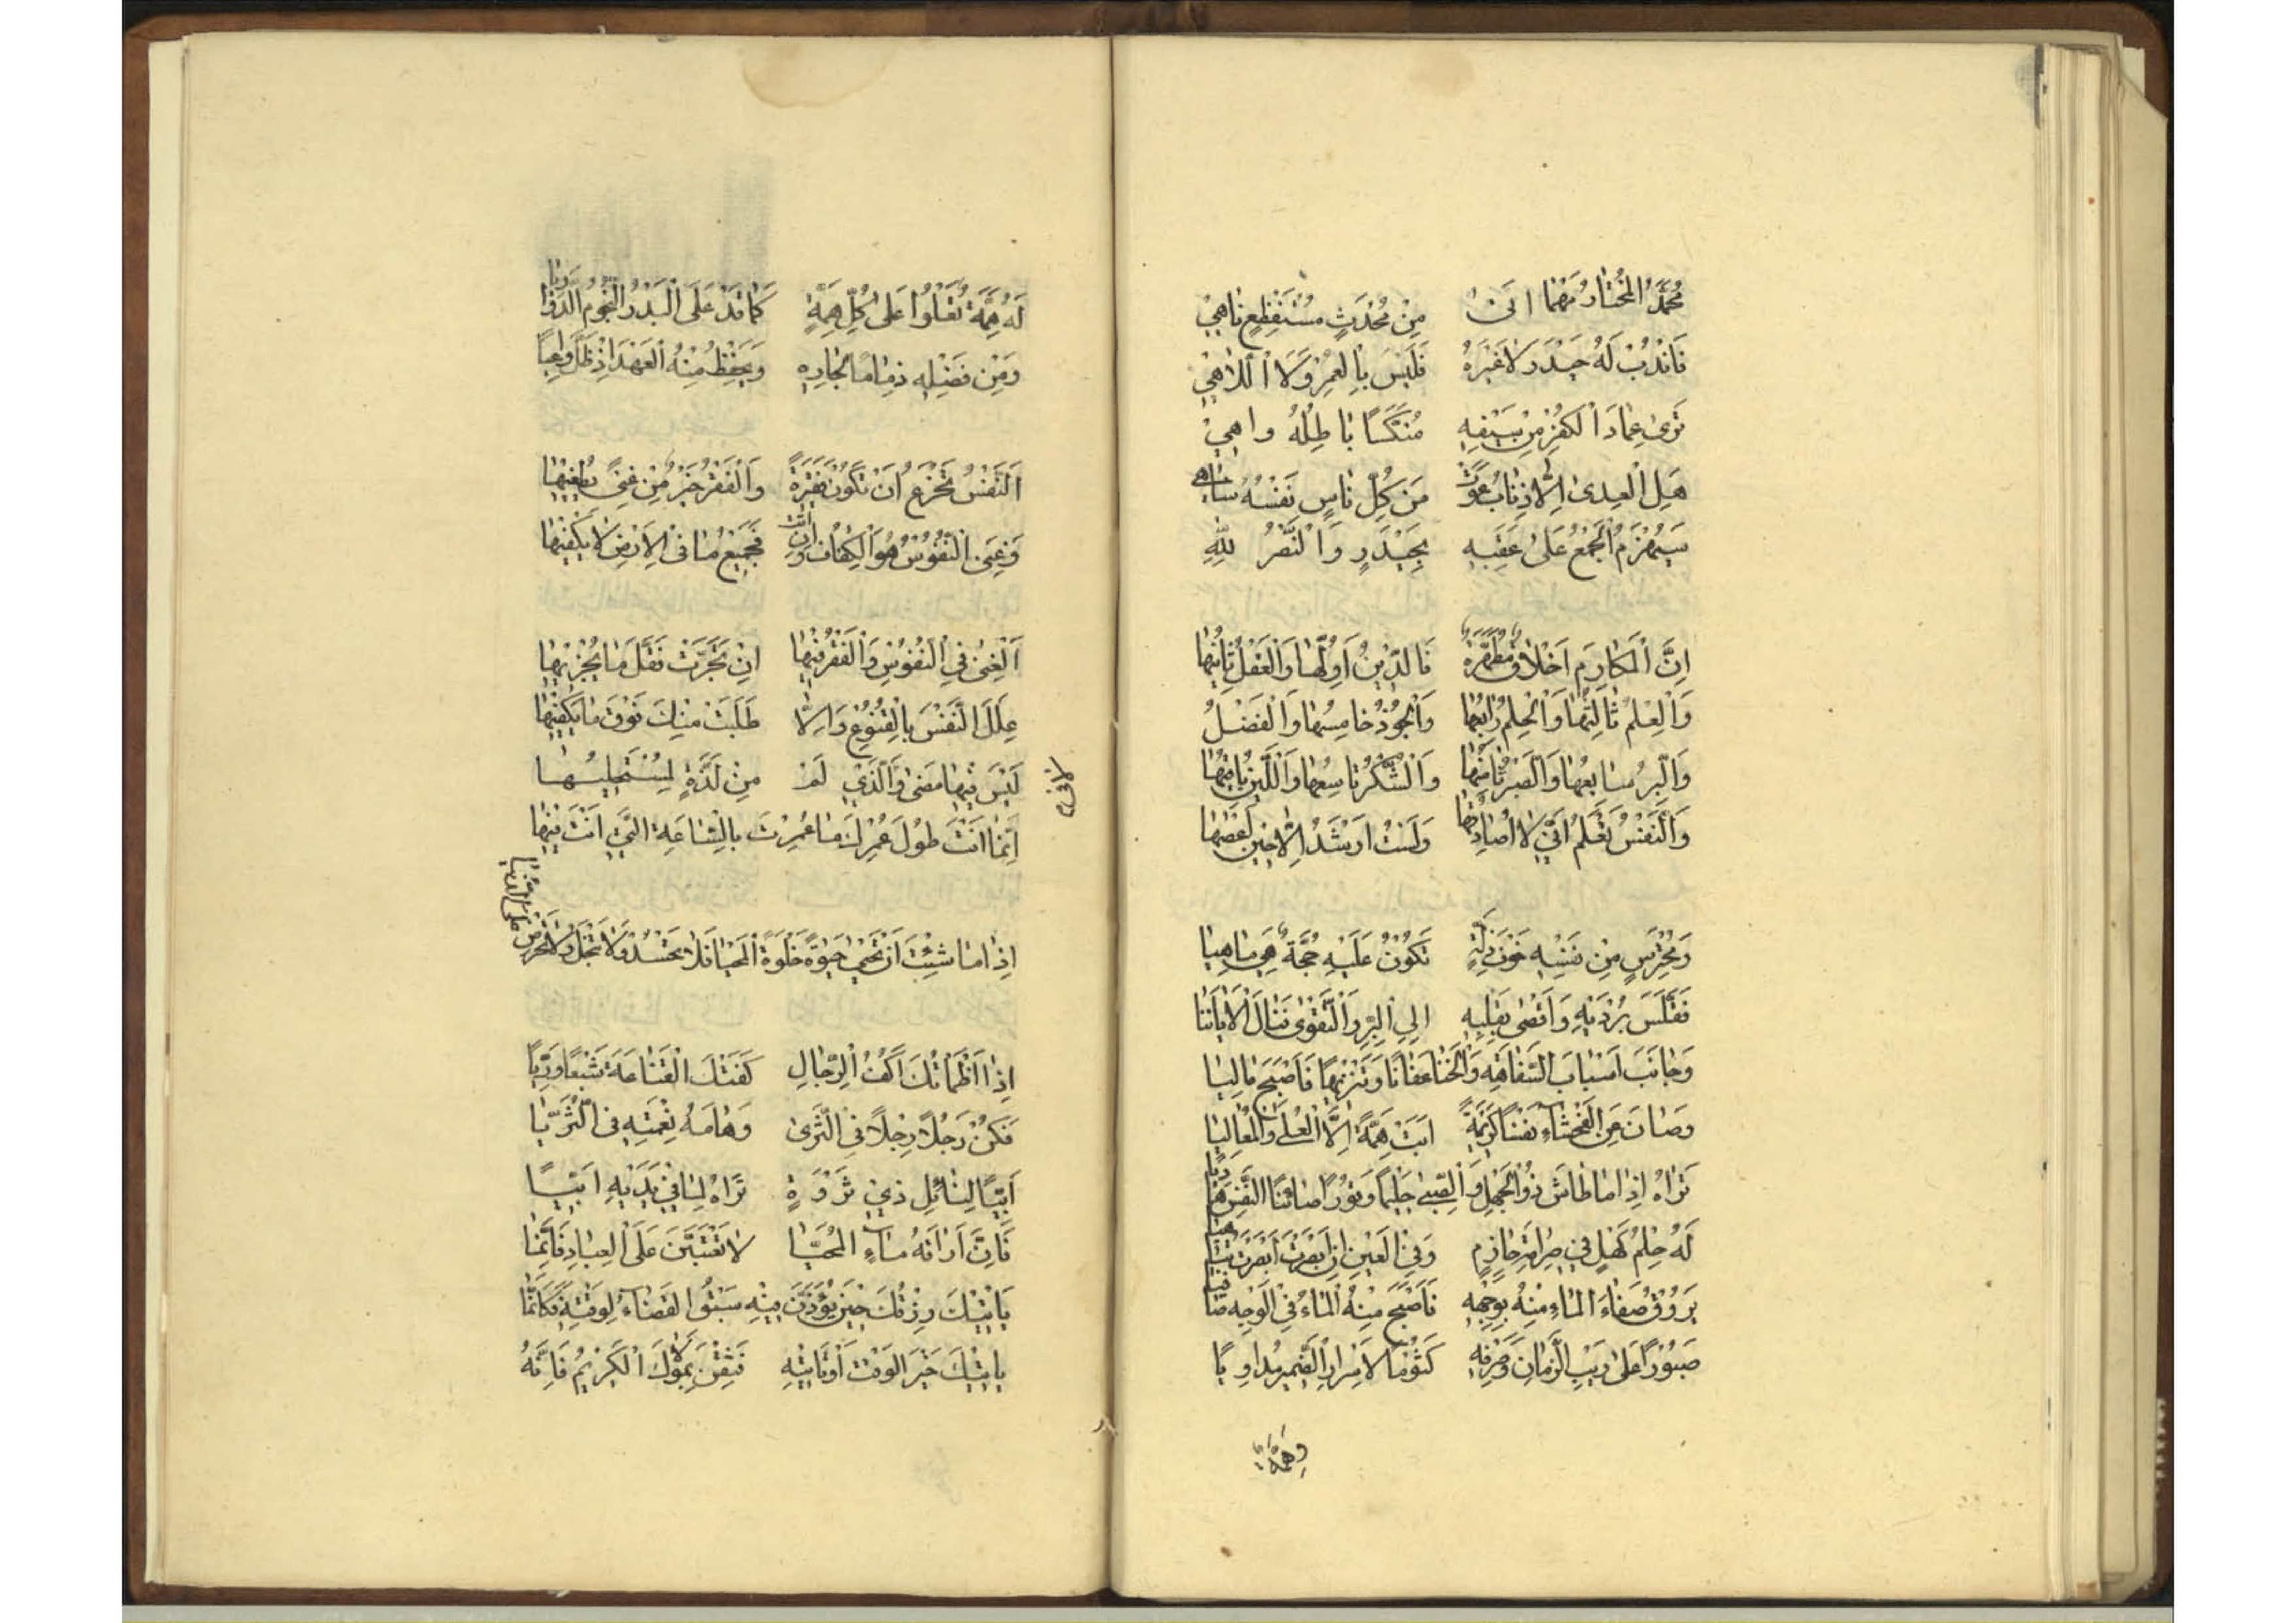 مُحَمَّدُ الْمُخْتَارُ مَهْمَا اتَىٰ مِنْ مُحْدَثٍ مُسْتَفْظِعٍ نَاهِيْ
فَانْدُبْ لَهُ حَيْدَرَ لَا غَيْرَهُ فَلَيْسَ بِالْغِمْرِ وَلَا اللَّاهِيْ
تَرَىٰ عِمَادَ الْكُفْرِ مِنْ سَيْفِهِ مُنَكَّسًا بَاطِلُهُ وَاهِيْ
هَلِ الْعِدَىٰ اِلَّا ذِئَابٌ عَوَتْ مَنْ كُلِّ نَاسٍ نَفْسُهُ سَاهِي
سَيُهْزَمُ الْجَمْعُ عَلَىٰ عَقِبِهِ بِحَيْدَرٍ وَالنَّصْرُ لِلّٰهِ
اِنَّ الْمَكَارِمَ اَخْلَاقٌ مُطَهَّرَةٌ فَالدِّيْنُ اَوَّلُهَا وَالْعَقْلُ ثَانِيْهَا
وَالْعِلْمُ ثَالِثُهَا وَالْحِلْمُ رَابِعُهَا وَالْجُوْدُ خَامِسُهَا وَالْفَضْلُ
وَالْبِرُّ سَابِعُهَا وَالصَّبْرُ ثَامِنُهَا وَالشُّكْرُ تَاسِعُهَا وَاللِّيْنُ بَاقِيْهَا
وَالنَّفْسُ تَعْلَمُ اَنِّيْ لَا اُصَادِقُهَا وَلَسْتُ اَرْشَدُ اِلَّا حِيْنَ اَعْصِيْهَا
وَمُحْتَرِسٍ مِنْ نَفْسِهِ خَوْفَ ذِلَّةٍ تَكُوْنُ عَلَيْهِ حُجَّةٌ هِيَ مَاهِيَا
فَقَلَّصَ بُرْدَيْهِ وَاَفْضَىٰ بِقَلْبِهِ اِلَى الْبِرِّ وَالتَّقْوَىٰ فَنَالَ الْاَمَانِيَا
وَجَانَبَ اَسْبَابَ السَّفَاهَةِ وَالْخَنَا عَفَافًا وَتَنْزِيْهًا فَاَصْبَحَ عَالِيَا
وَصَانَ مِنَ الْفَحْشَاءِ نَفْسًا كَرِيْمَةً اَبَتْ هِمَّةً اِلَّا الْعُلَىٰ وَالْمَعَالِيَا
تَرَاهُ اِذَا مَا طَاشَ ذُو الْجَهْلِ وَالصِّبَىٰ حَلِيْمًا وَقُوْرًا صَائِنَ النَّفْسِ هَادِيَا
لَهُ حِلْمُ كَهْلٍ فِيْ صَرَامَةِ حَازِمٍ وَفِي الْعَيْنِ اِنْ اَبْصَرْتَ اَبْصَرْتَ سَاهِيَا
يَرُوْقُ صَفَاءُ الْمَاءِ مِنْهُ بِوَجْهِهِ فَاَصْبَحَ مِنْهُ الْمَاءُ فِي الْوَجْهِ صَافِيَا
صَبُوْرًا عَلَىٰ رَيْبِ الزَّمَانِ وَصَرْفِهِ كَتُوْمًا لِاَسْرَارِ الضَّمِيْرِ مُدَاوِيًا
لَهُ هِمَّةٌ تَعْلُوْا عَلَىٰ كُلِّ هِمَّةٍ كَمَا قَدْ عَلَى الْبَدْرُ النُّجُوْمَ الدَّرَارِيَا
وَمِنْ فَضْلِهِ ذِمَامًا لِجَارِهِ وَيَحْفَظُ مِنْهُ الْعَهْدَ اِذْ ظَلَّ وَاعِيًا
اَلنَّفْسُ تَجْزَعُ اَنْ تَكُوْنَ فَقِيْرَةً وَالْفَقْرُ خَيْرٌ مِنْ غِنًى يُطْغِيْهَا
وَغِنَى النُّفُوْسِ هُوَ الْكَفَافُ وَاِنْ اَبَتْ فَجَمِيْعُ مَا فِي الْاَرْضِ لَا يَكْفِيْهَا
اَلْغِنَىٰ فِي النُّفُوْسِ وَالْفَقْرُ فِيْهَا اِنْ تَجَزَّتْ فَقَلَّ مَا يُجْزِيْهَا
عَلِّلِ النَّفْسَ بِالْقُنُوْعِ وَاِلَّا طَلَبَتْ مِنْكَ فَوْقَ مَا يَكْفِيْهَا
لَيْسَ فِيْهَا مَضَىٰ وَالَّذِيْ لَمْ مِنْ لَذَّةٍ لِمُسْتَحْلِيْهَا
اِنَّمَا اَنْتَ طُوْلَ عُمْرِكَ مَا عُمِرْتَ بِالسَّاعَةِ الَّتِيْ اَنْتَ فِيْهَا
اِذَا مَا شِئْتَ اَنْ تَحْيٰى حَيٰوةً حُلْوَةَ الْمَحْيَا فَلَا تَحْسُدْ وَلَا تَبْخَلْ وَلَا تَحْرِصْ عَلَى الدُّنْيَا
اِذَا اَظْمَاَتْكَ اَكُفُّ الرِّجَالِ كَفَتْكَ الْقَنَاعَةُ شَبْعًا وَرِيًّا
فَكُنْ رَجُلًا رِجْلًا فِي الثَّرَىٰ وَهَامَةُ هِمَّتِهِ فِي الثُّرَيَّا
اَبِيًّا لِنَائِلِ ذِيْ ثَرْوَةٍ تَرَاهُ لِمَا فِيْ يَدَيْهِ اَبِيًّا
فَاِنَّ اَرَاقَةَ مَاءِ الْمُحَيَّا لَا تَعْتِبَنَّ عَلَى الْعِبَادِ فَاِنَّمَا
يَاْتِيْكَ رِزْقُكَ حِيْنَ يُؤْذَنُ فِيْهِ سَبَقَ الْقَضَاءُ لِوَقْتِهِ فَكَاَنَّمَا
يَاْتِيْكَ خَيْرَ الْوَقْتِ اَوْ تَاْتِيْهِ فَثِقَنْ بِمَوْلَاكَ الْكَرِيْمِ فَاِنَّهُ